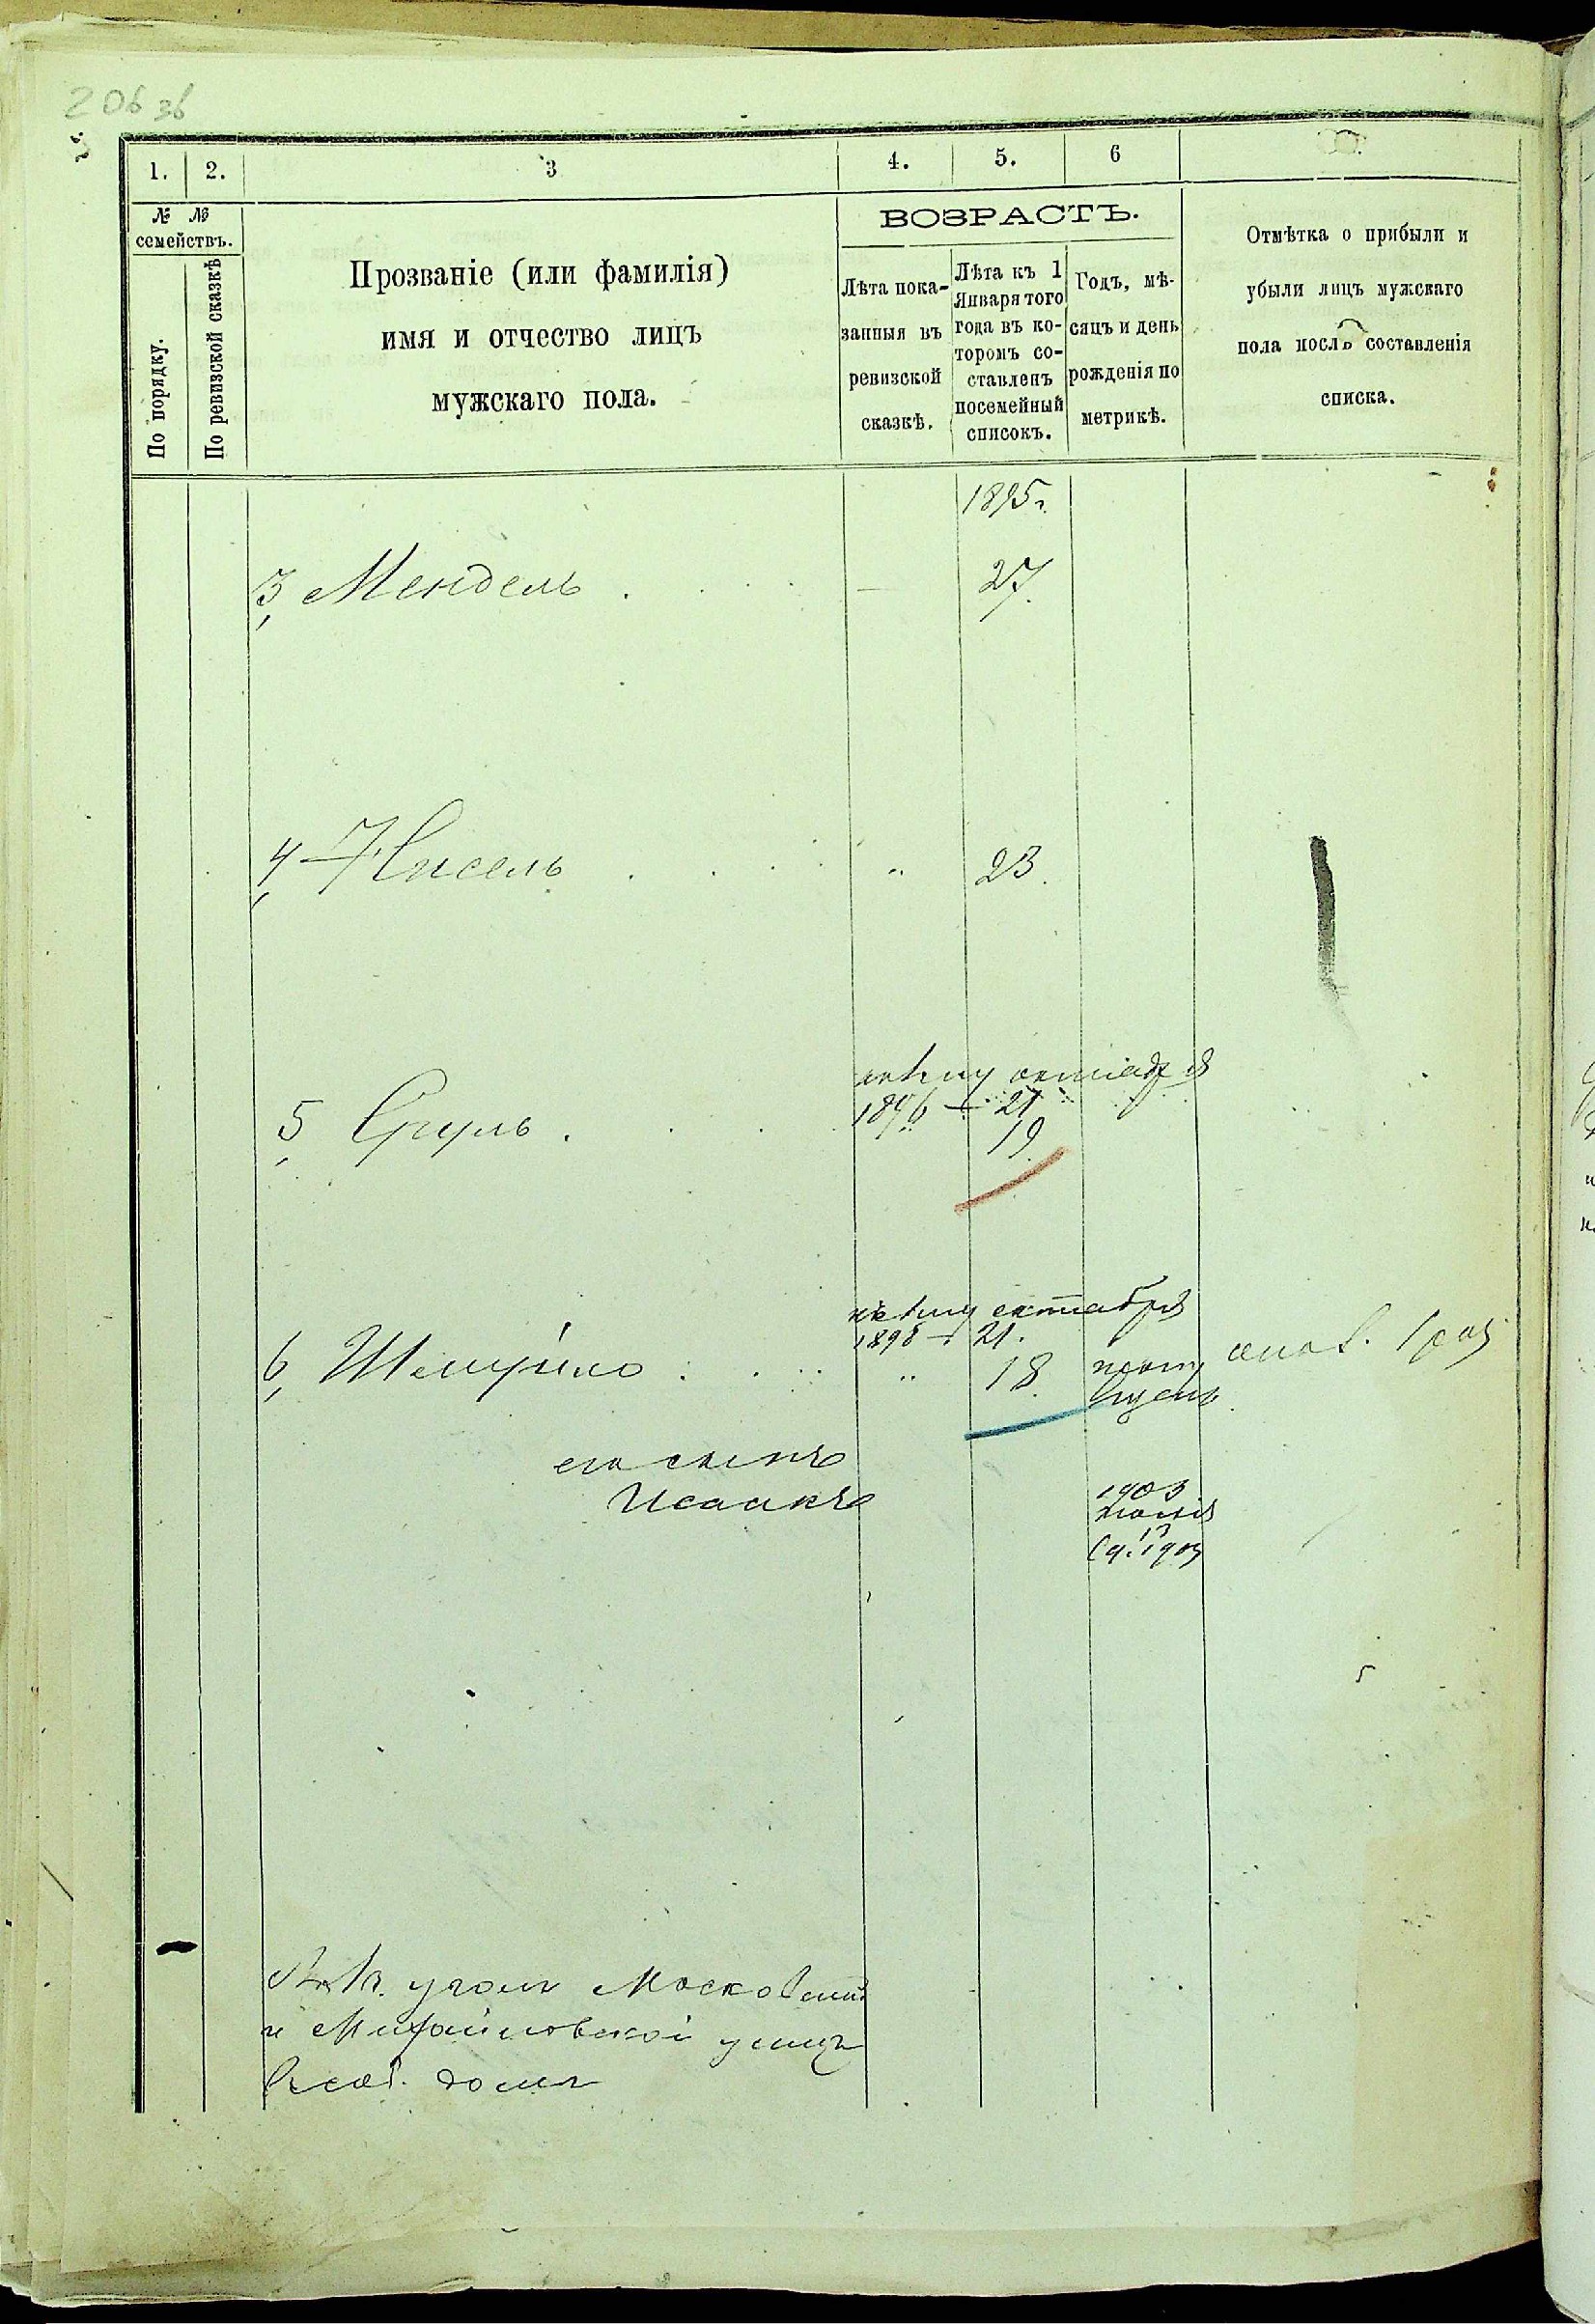 206 зв
1. 2. 3 4. 5. 6
№ № семействъ.
По порядку.
По ревизской сказкѣ
Прозваніе (или фамилія)
имя и отчество лицъ
мужскаго пола.
ВОЗРАСТЪ.
Лѣта пока-
занныя въ
ревизской
сказкѣ.
Лѣта къ 1
Января того
года въ ко-
торомъ со-
ставленъ
посемейный
списокъ.
Годъ, мѣ-
сяцъ и день
рожденія по
метрикѣ.
Отмѣтка о прибыли и
убыли лицъ мужскаго
пола послѣ составленія
списка.
1895г.
3, Мендель . . — 27.
4, Нисель . . . " 23.
къ 1му октября
1896 — 21
5, Сруль . . . 19
къ 1му октября
1898 — 21.
6, Шмуйло . . . " 18
его сынъ
Исаакъ
1903
Іюня
13
уголъ Московской
и Михайловской улицъ
въ соб. домѣ